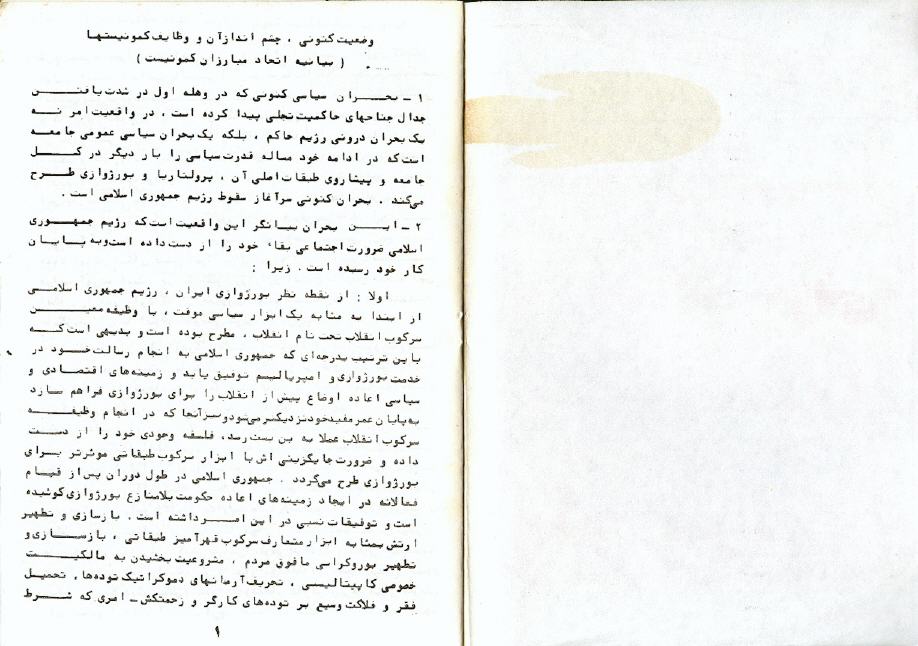 وضعیت کنونی ، چشم اندازآن و وظایف کمونیستها
( بیانیه اتحاد مبارزان کمونیست )
۱ ـ بحـــران سیاسی کنونی که در وهله اول در شدت یافتـــن
جدال جناحهای حاکمیت تجلی پیدا کرده است ، در واقعیت امر نـــه
یک بحران درونی رژیم حاکم ، بلکه یک بحران سیاسی عمومی جامعـــه
است که در ادامه خود مساله قدرت سیاسی را بار دیگر در کـــل
جامعه و پیشاروی طبقات اصلی آن ، پرولتاریا و بورژوازی طـــرح
می‌کند . بحران کنونی سرآغاز سقوط رژیم جمهوری اسلامی است .
۲ ـ ایـــن بحران بیانگر این واقعیت است که رژیم جمهـــوری
اسلامی ضرورت اجتماعی بقاء خود را از دست داده است و به پـایـان
کار خود رسیده است . زیرا :
اولا : از نقطه نظر بورژوازی ایران ، رژیم جمهوری اسلامـــی
از ابتدا به مثابه یک ابزار سیاسی موقت ، با وظیفه معیـــن
سرکوب انقلاب تحت نام انقلاب ، مطرح بوده است و بدیهی است کـــه
باین ترتیب بدرجه‌ای که جمهوری اسلامی به انجام رسالت خـــود در
خدمت بورژوازی و امپریالیسم توفیق یابد و زمینه‌های اقتصـادی و
سیاسی اعاده اوضاع پیش از انقلاب را برای بورژوازی فراهم سازد
به پایان عمر مفید خود نزدیکتر می‌شود و نیز آنجا که در انجام وظیفـــه
سرکوب انقلاب عملا به بن بست رسد، فلسفه وجودی خود را از دســـت
داده و ضرورت جایگزینی اش با ابزار سرکوب طبقاتی موثرتر بـــرای
بورژوازی طرح می‌گردد . جمهوری اسلامی در طول دوران پس از قیـــام
فعالانه در ایجاد زمینه‌های اعاده حکومت بلامنازع بورژوازی کوشیده
است و توفیقات نسبی در این امـــر داشته است . بازسازی و تطهیر
ارتش بمثابه ابزار متعارف سرکوب قهرآمیز طبقاتی ، بازســـازی و
تطهیر بوروکراسی مافوق مردم ، مشروعیت بخشیدن به مالکیـــت
خصوصی کاپیتالیستی ، تحریف آرمانهای دموکراتیک توده‌ها، تحمیل
فقر و فلاکت وسیع بر توده‌های کارگر و زحمتکش ـ امری که شـــرط
۱